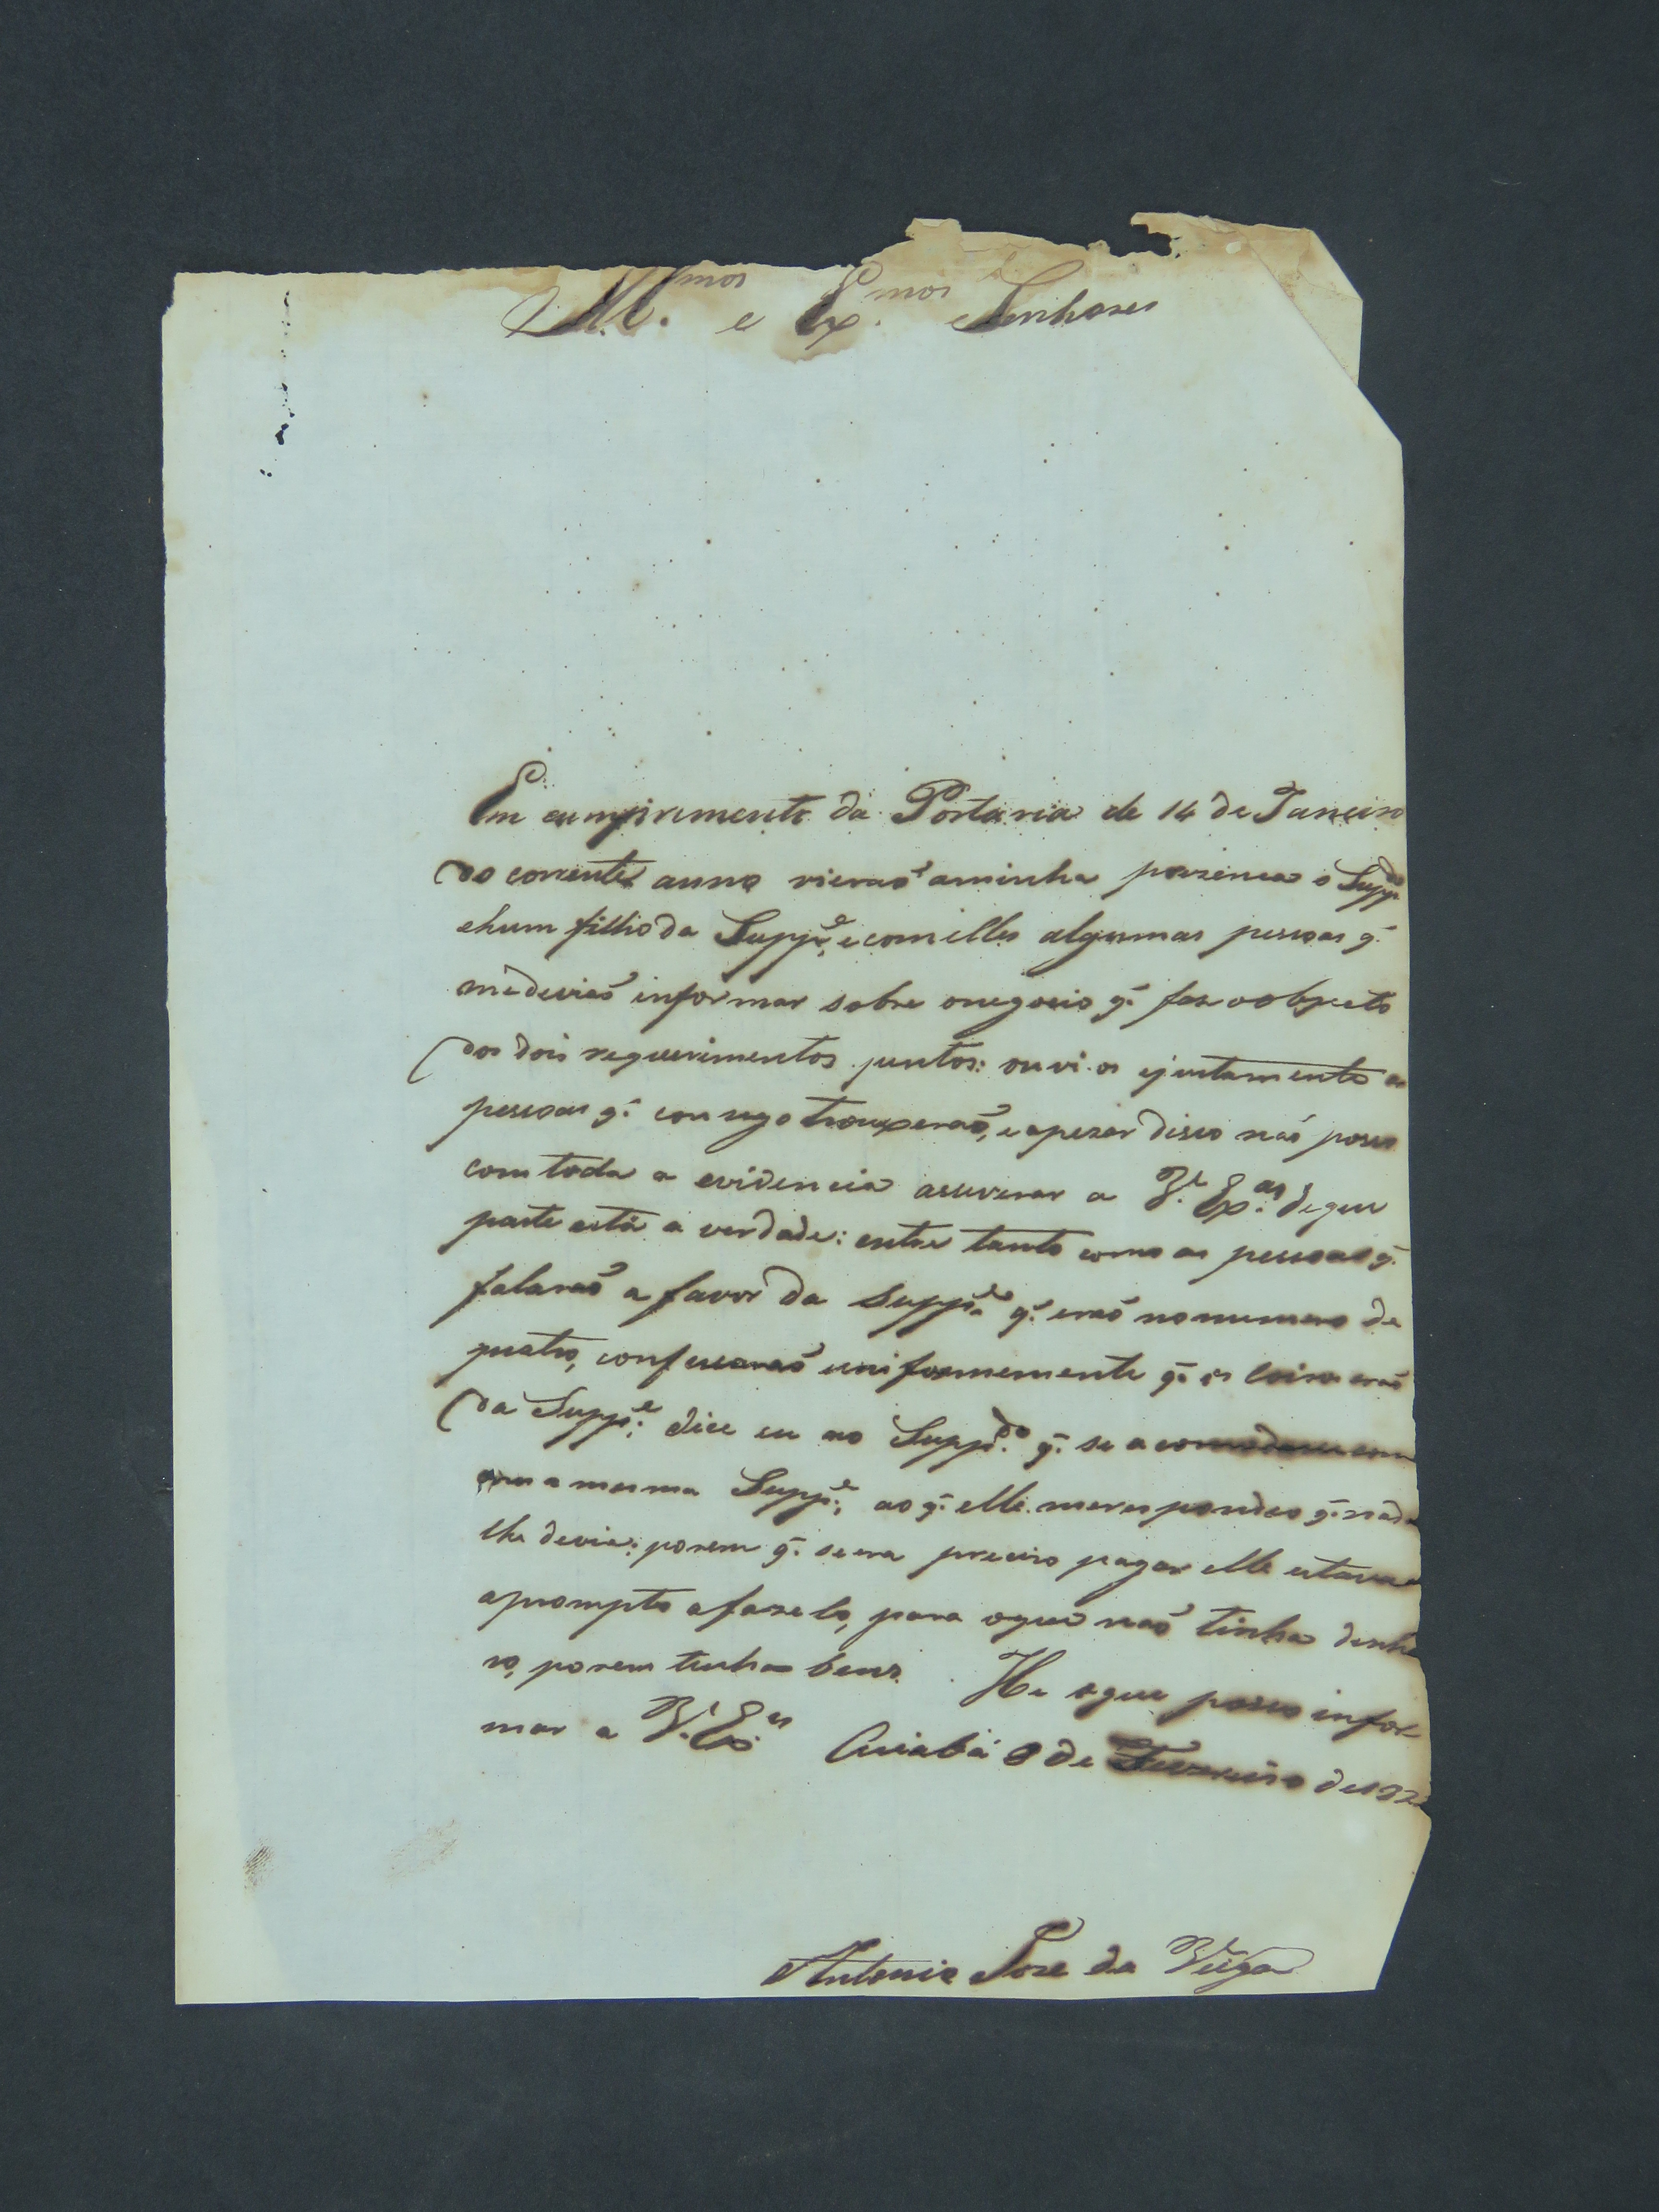 Ill.mos e Ex.mos Senhores
Em cumprimento da Portaria de 14 de Janeiro
do corrente anno vieraõ aminha prezenca o Supp.do
ehum filho da Supp.e, e com elles algumas pessoas q.
me deviaõ informar sobre onegocio q. faz o objecto
dos dois requerimentos juntos: ouvi-os ejuntamente as
pessoas q. comsigo trouxeraõ, e apezar disso naõ posso
com toda a evidencia aseverar a V. Ex.as de que
parte está a verdade: entre tanto como as pessoas q.
falaraõ a favor do Supp.do q. eraõ no numero de
quatro, confessaraõ uniformemente q. as coizas eraõ
da Supp.e, dice eu ao Supp.do q. se acomodasse com
a mesma Supp.e, ao q. elle merespondeo q. nada
lhe devia; porem q. se era preciso pagar elle estava
aprompto afazelo, para oque naõ tinha dinhei
ro, porem tinha bens. He oque posso infor
mar a V. Ex.as Cuiabá 8 de Fevereiro de 182
Antonio Jose da Veiga